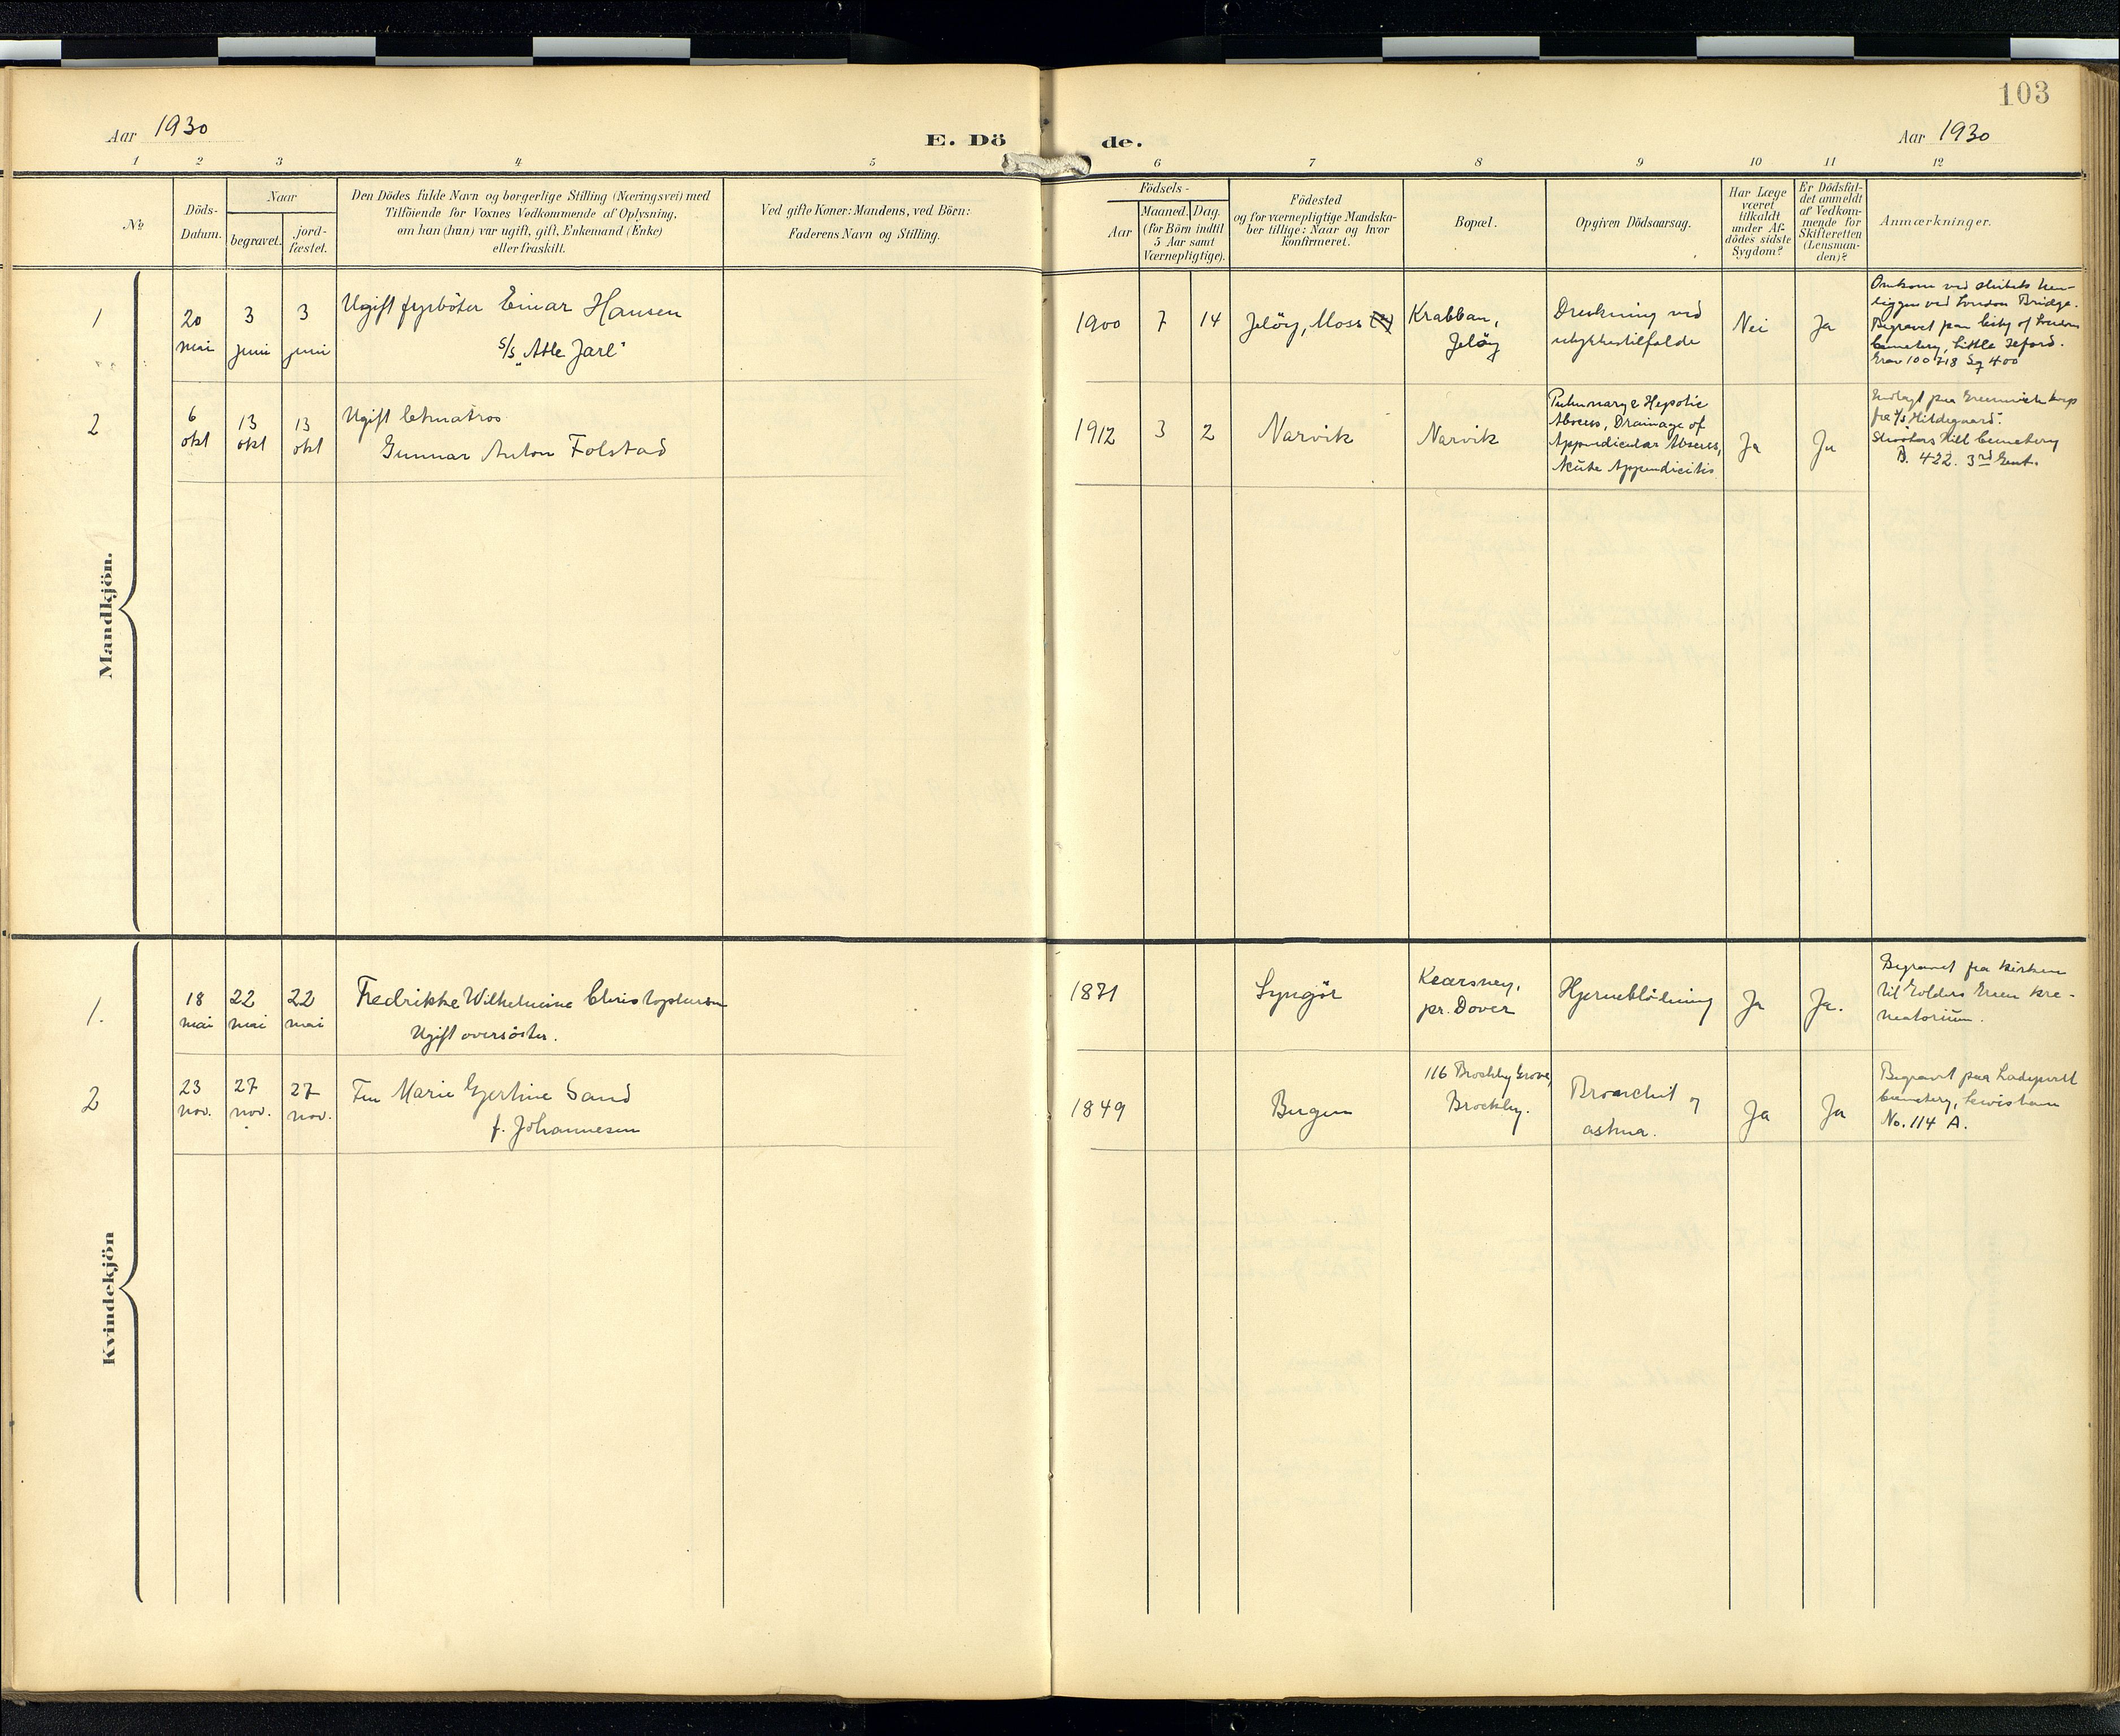 103
Aar 1930
E. Dö de.
Aar 1930
1 2 3 4 5 6 7 8 9 10 11 12
No
Döds-
Datum.
Naar
begravet.
jord-
fæstet.
Den Dödes fulde Navn og borgerlige Stilling (Næringsvei) med
Tilföiende for Voxnes Vedkommende af Oplysning,
om han (hun) var ugift, gift, Enkemand (Enke)
eller fraskilt.
Ved gifte Koner: Mandens, ved Börn:
Faderens Navn og Stilling.
Födsels-
Aar
Maaned. Dag.
(for Börn indtil
5 Aar samt
Værnepligtige).
Födested
og for værnepligtige Mandska-
ber tillige: Naar og hvor
konfirmeret.
Bopæl.
Opgiven Dödsaarsag.
Har Læge
været
tilkaldt
under Af-
dödes sidste
Sygdom?
Er Dödsfal-
det anmeldt
af Vedkom-
mende for
Skifteretten
(Lensman-
den)?
Anmærkninger.
Mandkjön.
1
20
mai
3
juni
3
juni
Ugift fyrböter Einar Hansen
S/S "Atle Jarl"
1900
7
14
Jelöy, Moss
Krabban,
Jelöy
Drukning ved
ulykkestilfelde
Nei
Ja
Omkom ved skibets hen-
liggen ved London Bridge.
Begravet paa City of London
Cemetery, Little Ilford.
Grav 100718 Sq 400
2
6
okt
13
okt
13
okt
Ugift letmatros
Gunnar Anton Folstad
1912
3
2
Narvik
Narvik
Pulmonary & Hepatic
Abscess, Drainage of
Appendicular Abscess,
Acute Appendicitis
Ja
Ja
Indlagt paa Greenwich hosp
fra S/S Hildegaard".
Shooters Hill Cemetery
B. 422. 3rd
Kvindekjön
1.
18
mai
22
mai
22
mai
Fredrikke Wilhelmine Christophersen
Ugift oversöster.
1871
Lyngör
Kearsney,
pr. Dover
Hjerneblödning
Ja
Ja.
Begravet fra kirken
til Golders Green kre-
matorium.
2
23
nov.
27
nov.
27
nov.
Fru Marie Gjertine Sand
f. Johannesen
1849
Bergen
116 Brockley Grove,
Brockley.
Bronchit og
astma.
Ja
Ja
Begravet paa Ladywell
Cemetery, Lewisham
No. 114 A.